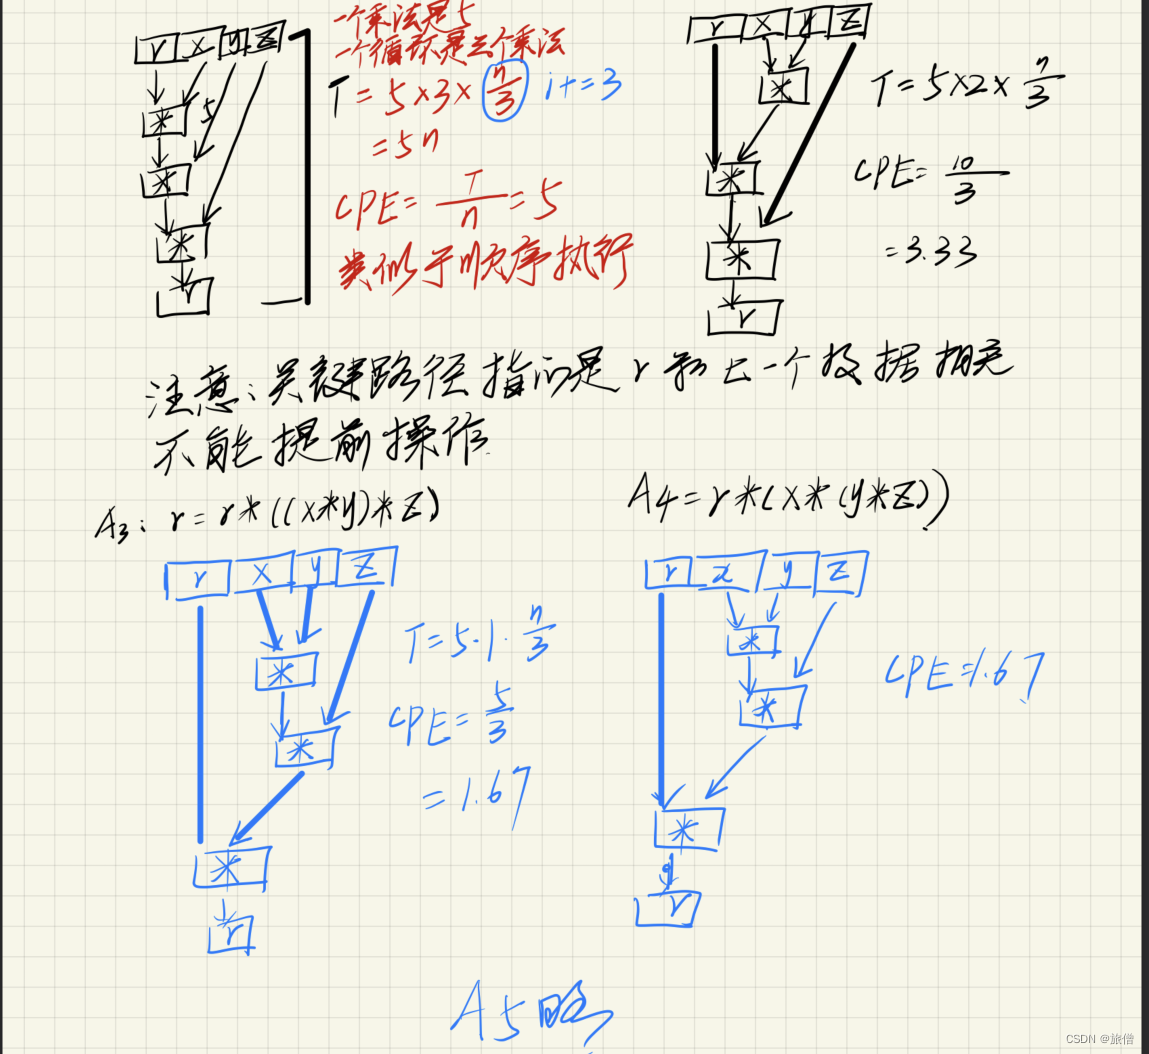 r x y z
一个乘法是5
一个循环是三个乘法
T = 5×3× n/3 i+=3
= 5n
CPE = T/n = 5
类似于顺序执行
* 5
*
*
r
r x y z
*
*
*
r
T = 5×2× n/3
CPE = 10/3
= 3.33
注意:关键路径指的是r和上一个数据相关
不能提前操作
A3: r = r*((x*y)*z)
A4 = r*(x*(y*z))
r x y z
*
*
*
r
T = 5·1· n/3
CPE = 5/3
= 1.67
r x y z
*
*
*
r
CPE = 1.67
A5略
CSDN @旅僧